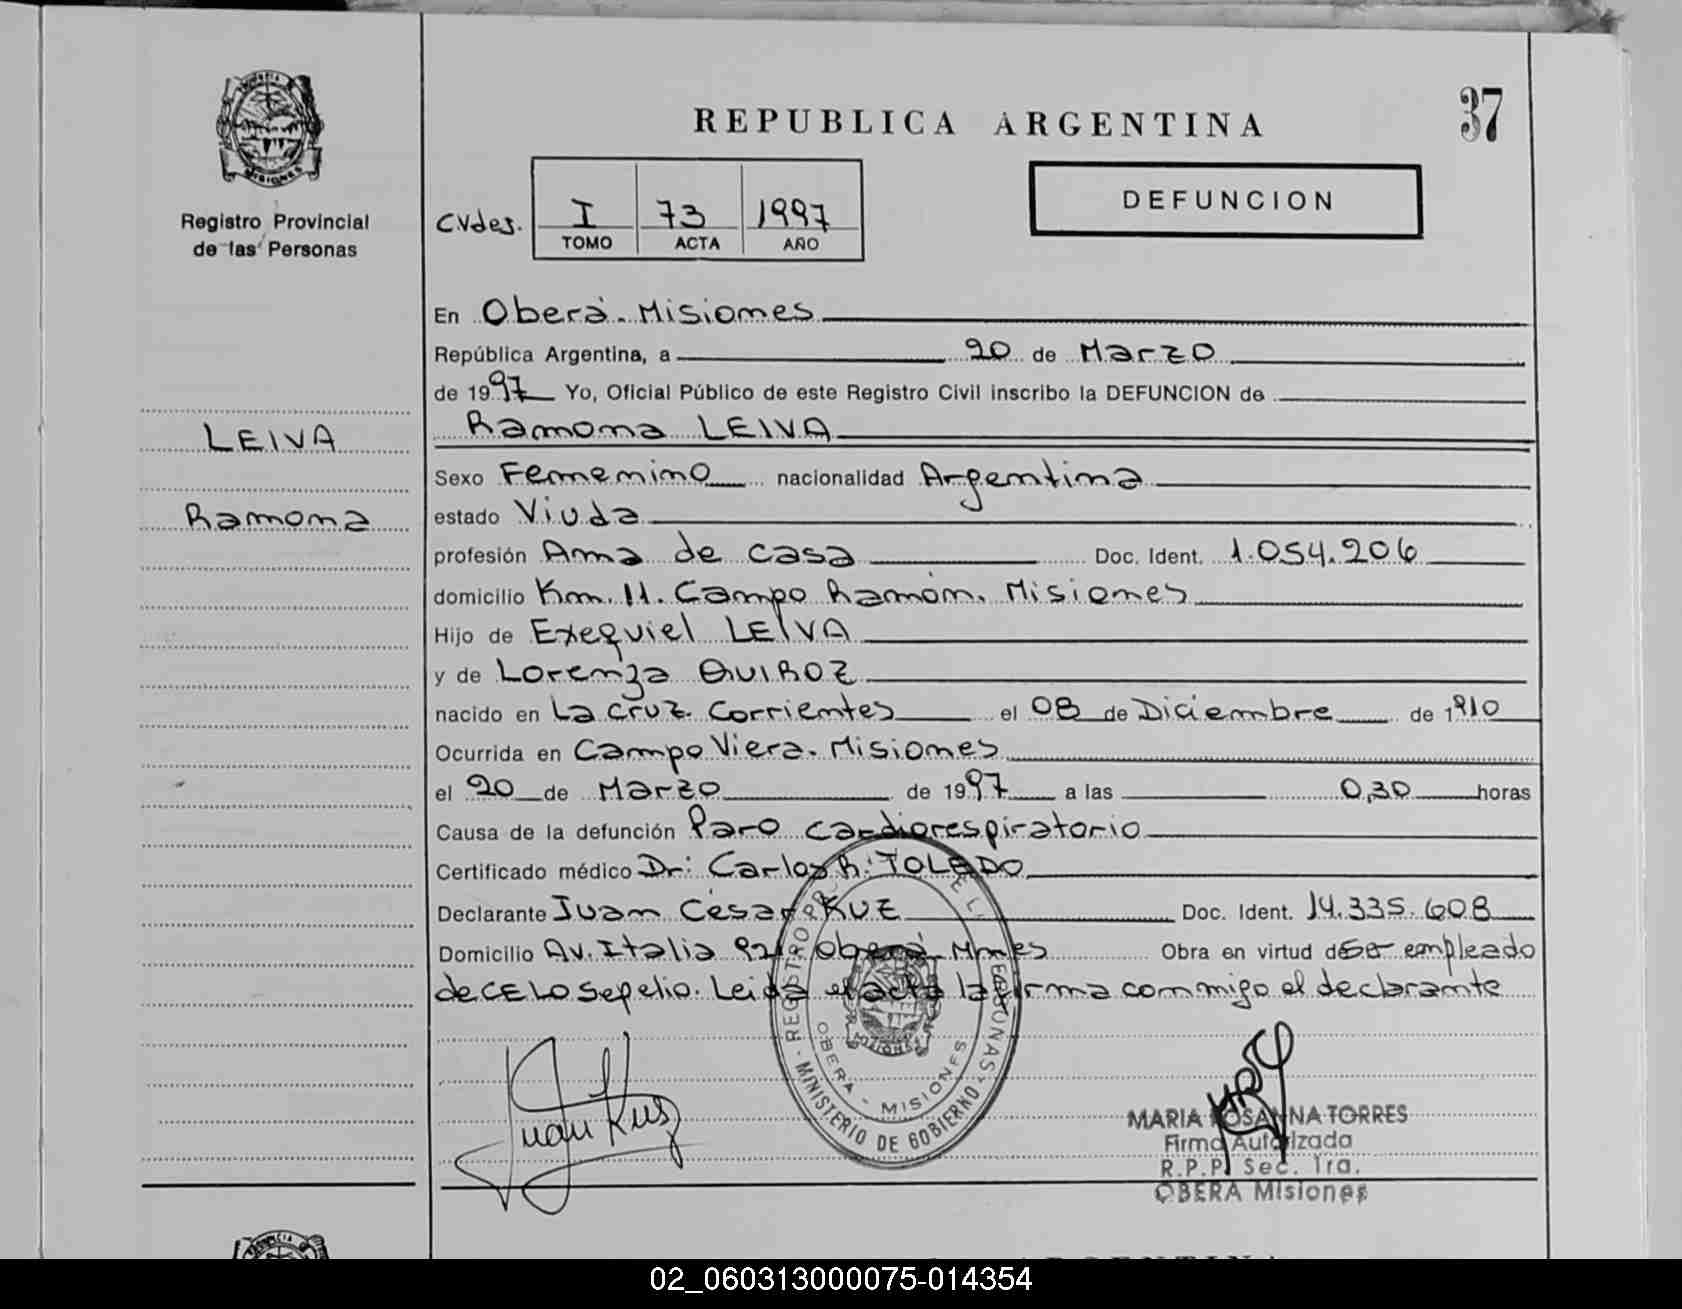 REPUBLICA ARGENTINA
37
Registro Provincial
de las Personas
C.Vdes.
I 73 1997
TOMO ACTA AÑO
DEFUNCION
LEIVA
Ramona
En Oberá. Misiones
República Argentina, a 20 de Marzo
de 1997 Yo, Oficial Público de este Registro Civil inscribo la DEFUNCION de
Ramona LEIVA
Sexo Femenino nacionalidad Argentina
estado Viuda
profesión Ama de casa Doc. Ident. 1.054.206
domicilio Km. 11. Campo Ramón. Misiones
Hijo de Exequiel LEIVA
y de Lorenza QUIROZ
nacido en La Cruz. Corrientes el 08 de Diciembre de 1910
Ocurrida en Campo Viera. Misiones
el 20 de Marzo de 1997 a las 0,30 horas
Causa de la defunción Paro cardiorespiratorio
Certificado médico Dr: Carlos R. TOLEDO
Declarante Juan César KUZ Doc. Ident. 14.335.608
Domicilio Av. Italia 921 Oberá Mnes Obra en virtud de Ser empleado
de CELO Sepelio. Leida el acta la firma conmigo el declarante
Juan Kuz
OBERA - MISIONES
MINISTERIO DE GOBIERNO
MARIA ROSANNA TORRES
Firma Autorizada
R.P.P. Sec. 1ra.
OBERA Misiones
02_060313000075-014354